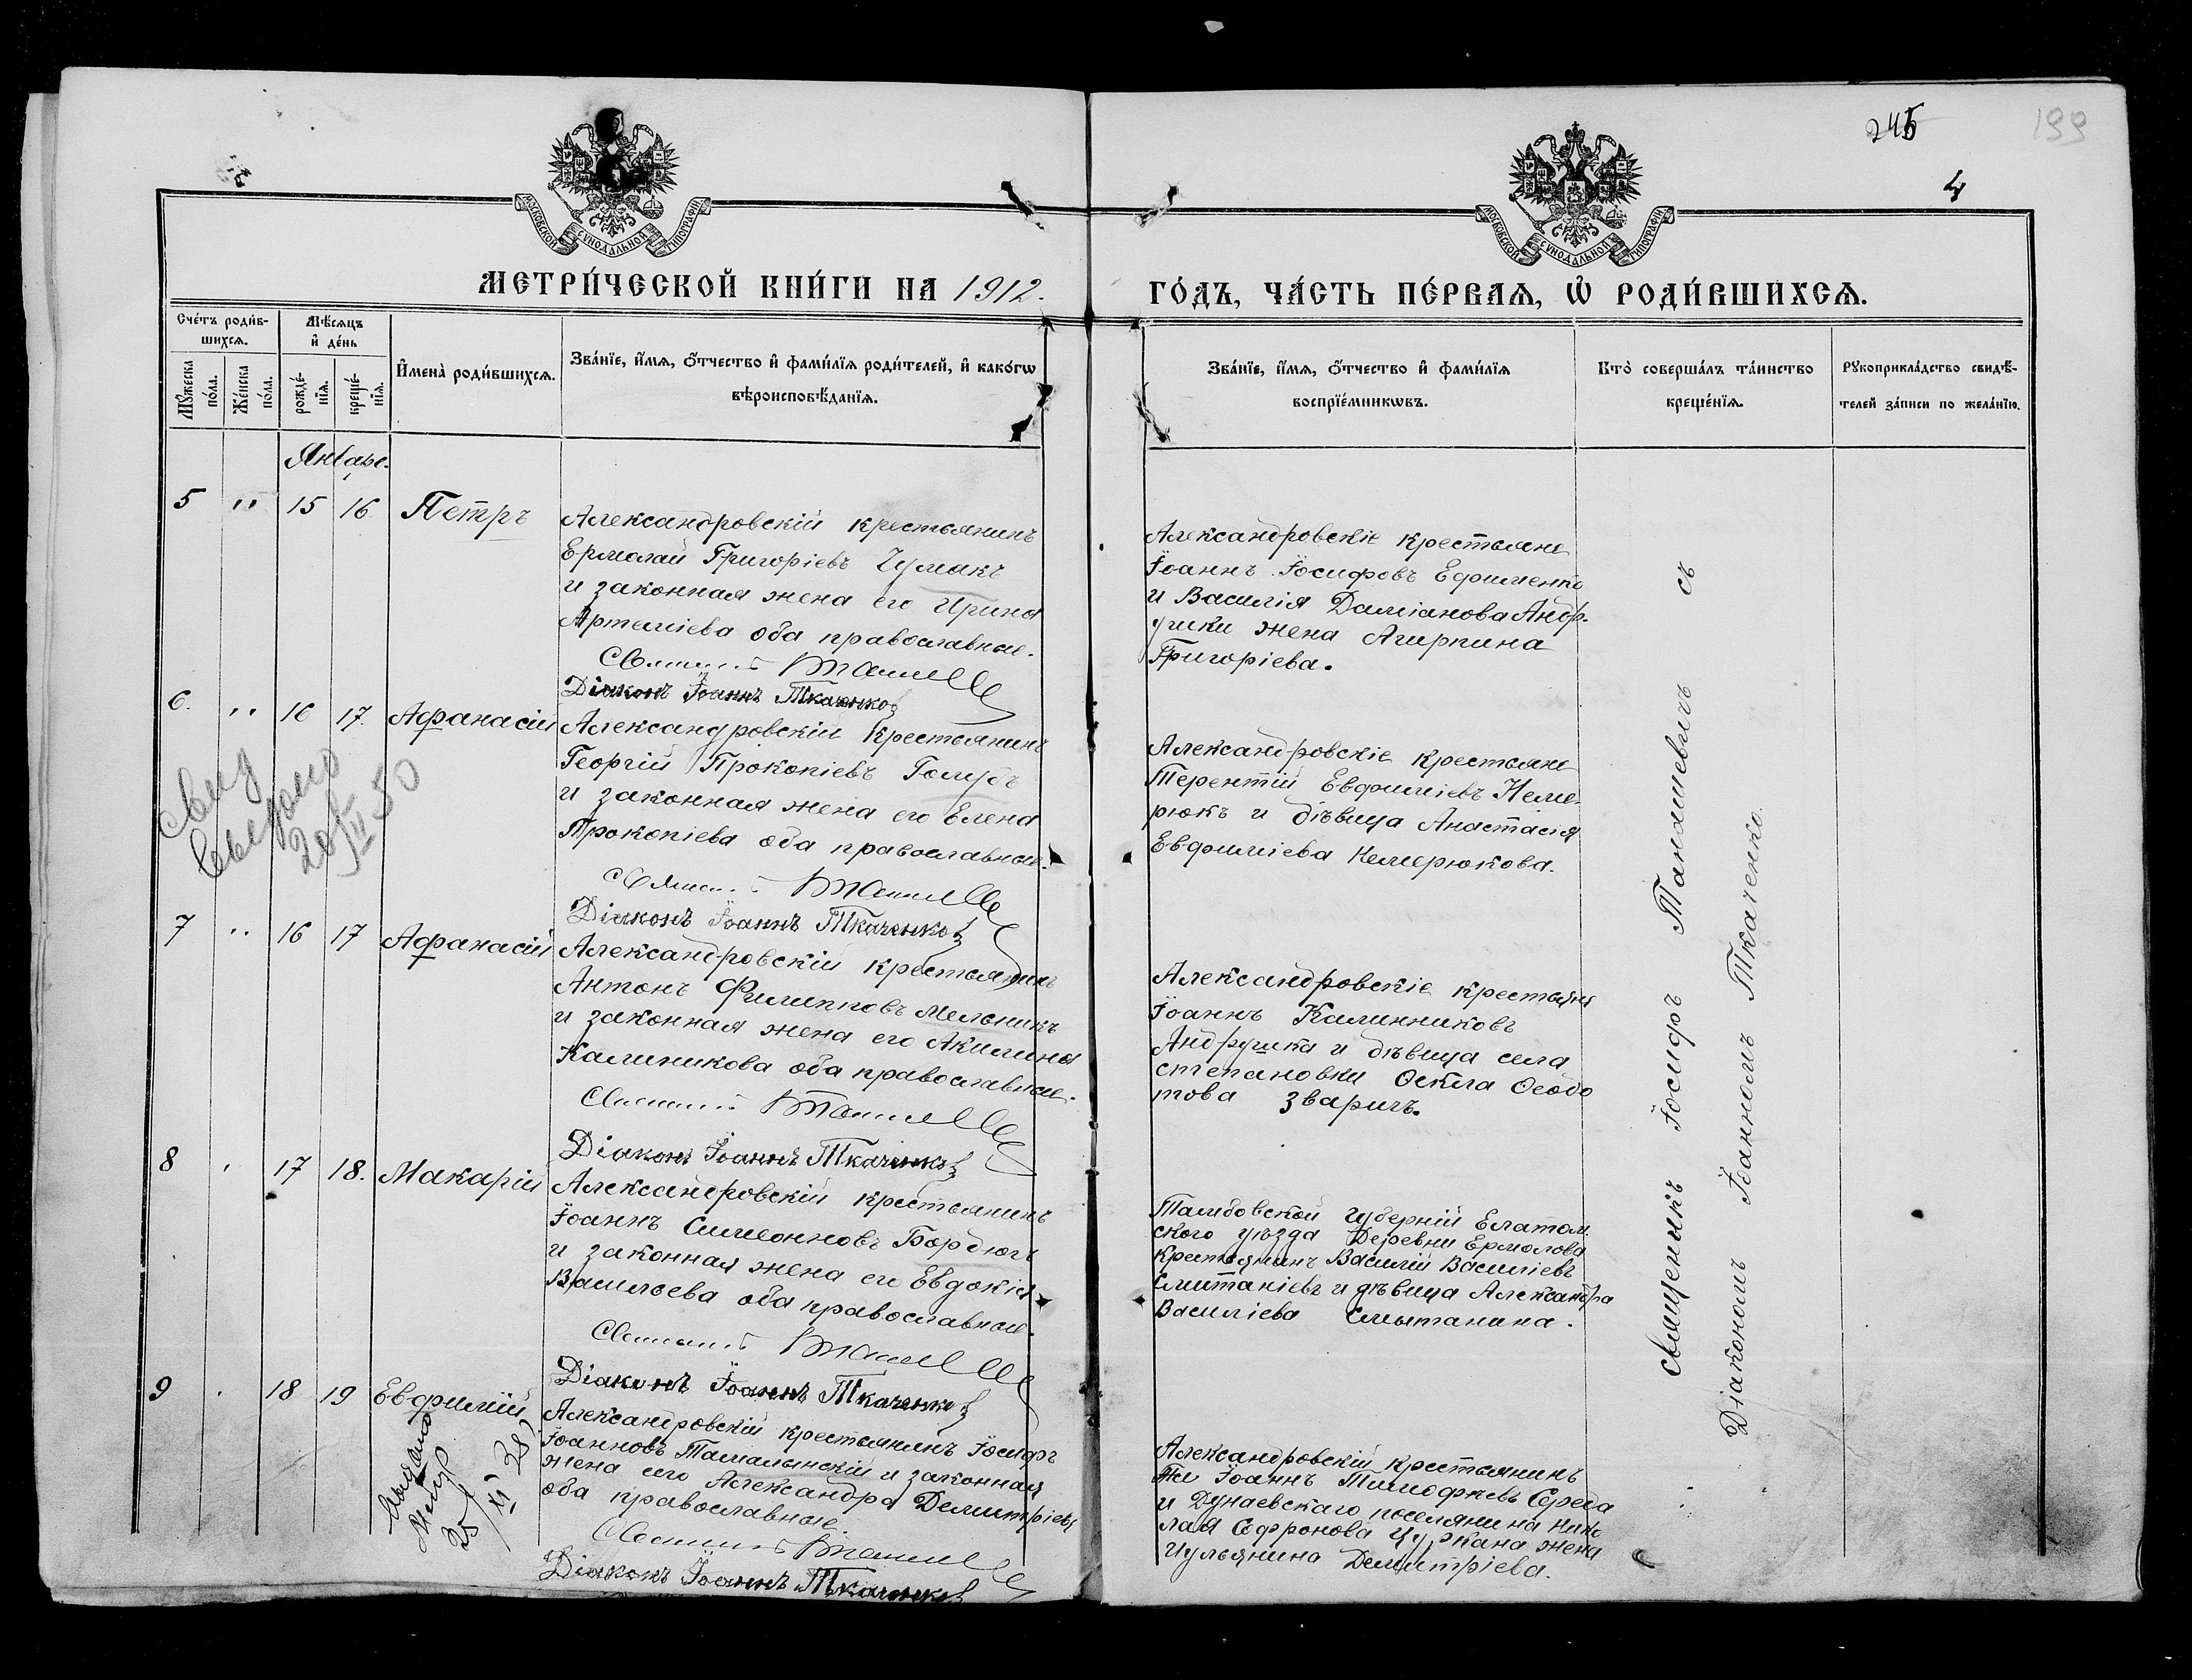 245
199
4
МОСКОВСКОЙ СУНОДАЛЬНОЙ ТИПОГРАФІИ
МОСКОВСКОЙ СУНОДАЛЬНОЙ ТИПОГРАФІИ
МЕТРИ́ЧЕСКОЙ КНИ́ГИ НА 1912.
ГО́ДЪ, ЧА́СТЬ ПЕ́РВАѦ, Ѡ҆ РОДИ́ВШИХСѦ.
Сче́тъ роди́в-
шихсѧ.
Мꙋжеска по́ла.
Же́нска по́ла.
Мѣ́сѧцъ
и҆ де́нь
рожде́-
нїѧ.
креще́-
нїѧ.
И҆мена̀ роди́вшихсѧ.
Зва́нїе, и҆́мѧ, ѻ҆́тчество и҆ фами́лїѧ роди́телей, и҆ како́гѡ
вѣроисповѣ́данїѧ.
Зва́нїе, и҆́мѧ, ѻ҆́тчество и҆ фами́лїѧ
воспрїе́мникѡвъ.
Кто̀ соверша́лъ та́инство
креще́нїѧ.
Рꙋкоприкла́дство свидѣ́-
телей за́писи по жела́нїю.
Январь.
5 " 15 16 Петръ
Александровскій крестьянинъ
Ермолай Григоріевъ Чумакъ
и законная жена его Ирина
Артеміева оба православные.
Діаконъ Іоаннъ Ткаченко
Александровскіе крестьяне
Іоаннъ Іосифовъ Ефименко
и Василія Даміанова Андр-
ушки жена Агирпина
Григоріева.
6. " 16 17. Афанасій
Александровскій крестьянинъ
Георгій Прокопіевъ Голубъ
и законная жена его Елена
Прокопіева оба православные.
Діаконъ Іоаннъ Ткаченко
Александровскіе крестьяне
Терентій Евфиміевъ Неме-
рюкъ и дѣвица Анастасія
Евфиміева Немерюкова.
7 " 16 17 Афанасій
Александровскій крестьянинъ
Антонъ Филипповъ Мельникъ
и законная жена его Акилина
Калиникова оба православные.
Діаконъ Іоаннъ Ткаченко
Александровскіе крестьяне
Іоаннъ Калинниковъ
Андрушка и дѣвица села
степановки Оскла Осодо
това Зваричъ.
8 " 17 18. Макарій
Александровскій крестьянинъ
Іоаннъ Симеонновъ Бордюгъ
и законная жена его Евдокія
Васильева оба православные.
Діаконъ Іоаннъ Ткаченко
Тамбовской губерній Елатом.
ского уѣзда Деревни Ермолова
крестьянинъ Василій Василіевъ
Смитаніевъ и дѣвица Александра
Василіева Смытанина.
9 " 18 19 Евфимій
Александровскій крестьянинъ Іосифъ
Іоанновъ Тамалынскій и законная
жена его Александра Демитріева
оба православные.
Діаконъ Іоаннъ Ткаченко
Александровскій крестьянинъ
Іоаннъ Тимофѣевъ Середа
и Дунаевскаго поселянина Нико
лая Софронова Цуркана жена
Иульянина Демитріева.
Священникъ Іосифъ Танашевичъ съ
Діакономъ Іоанномъ Ткаченко.